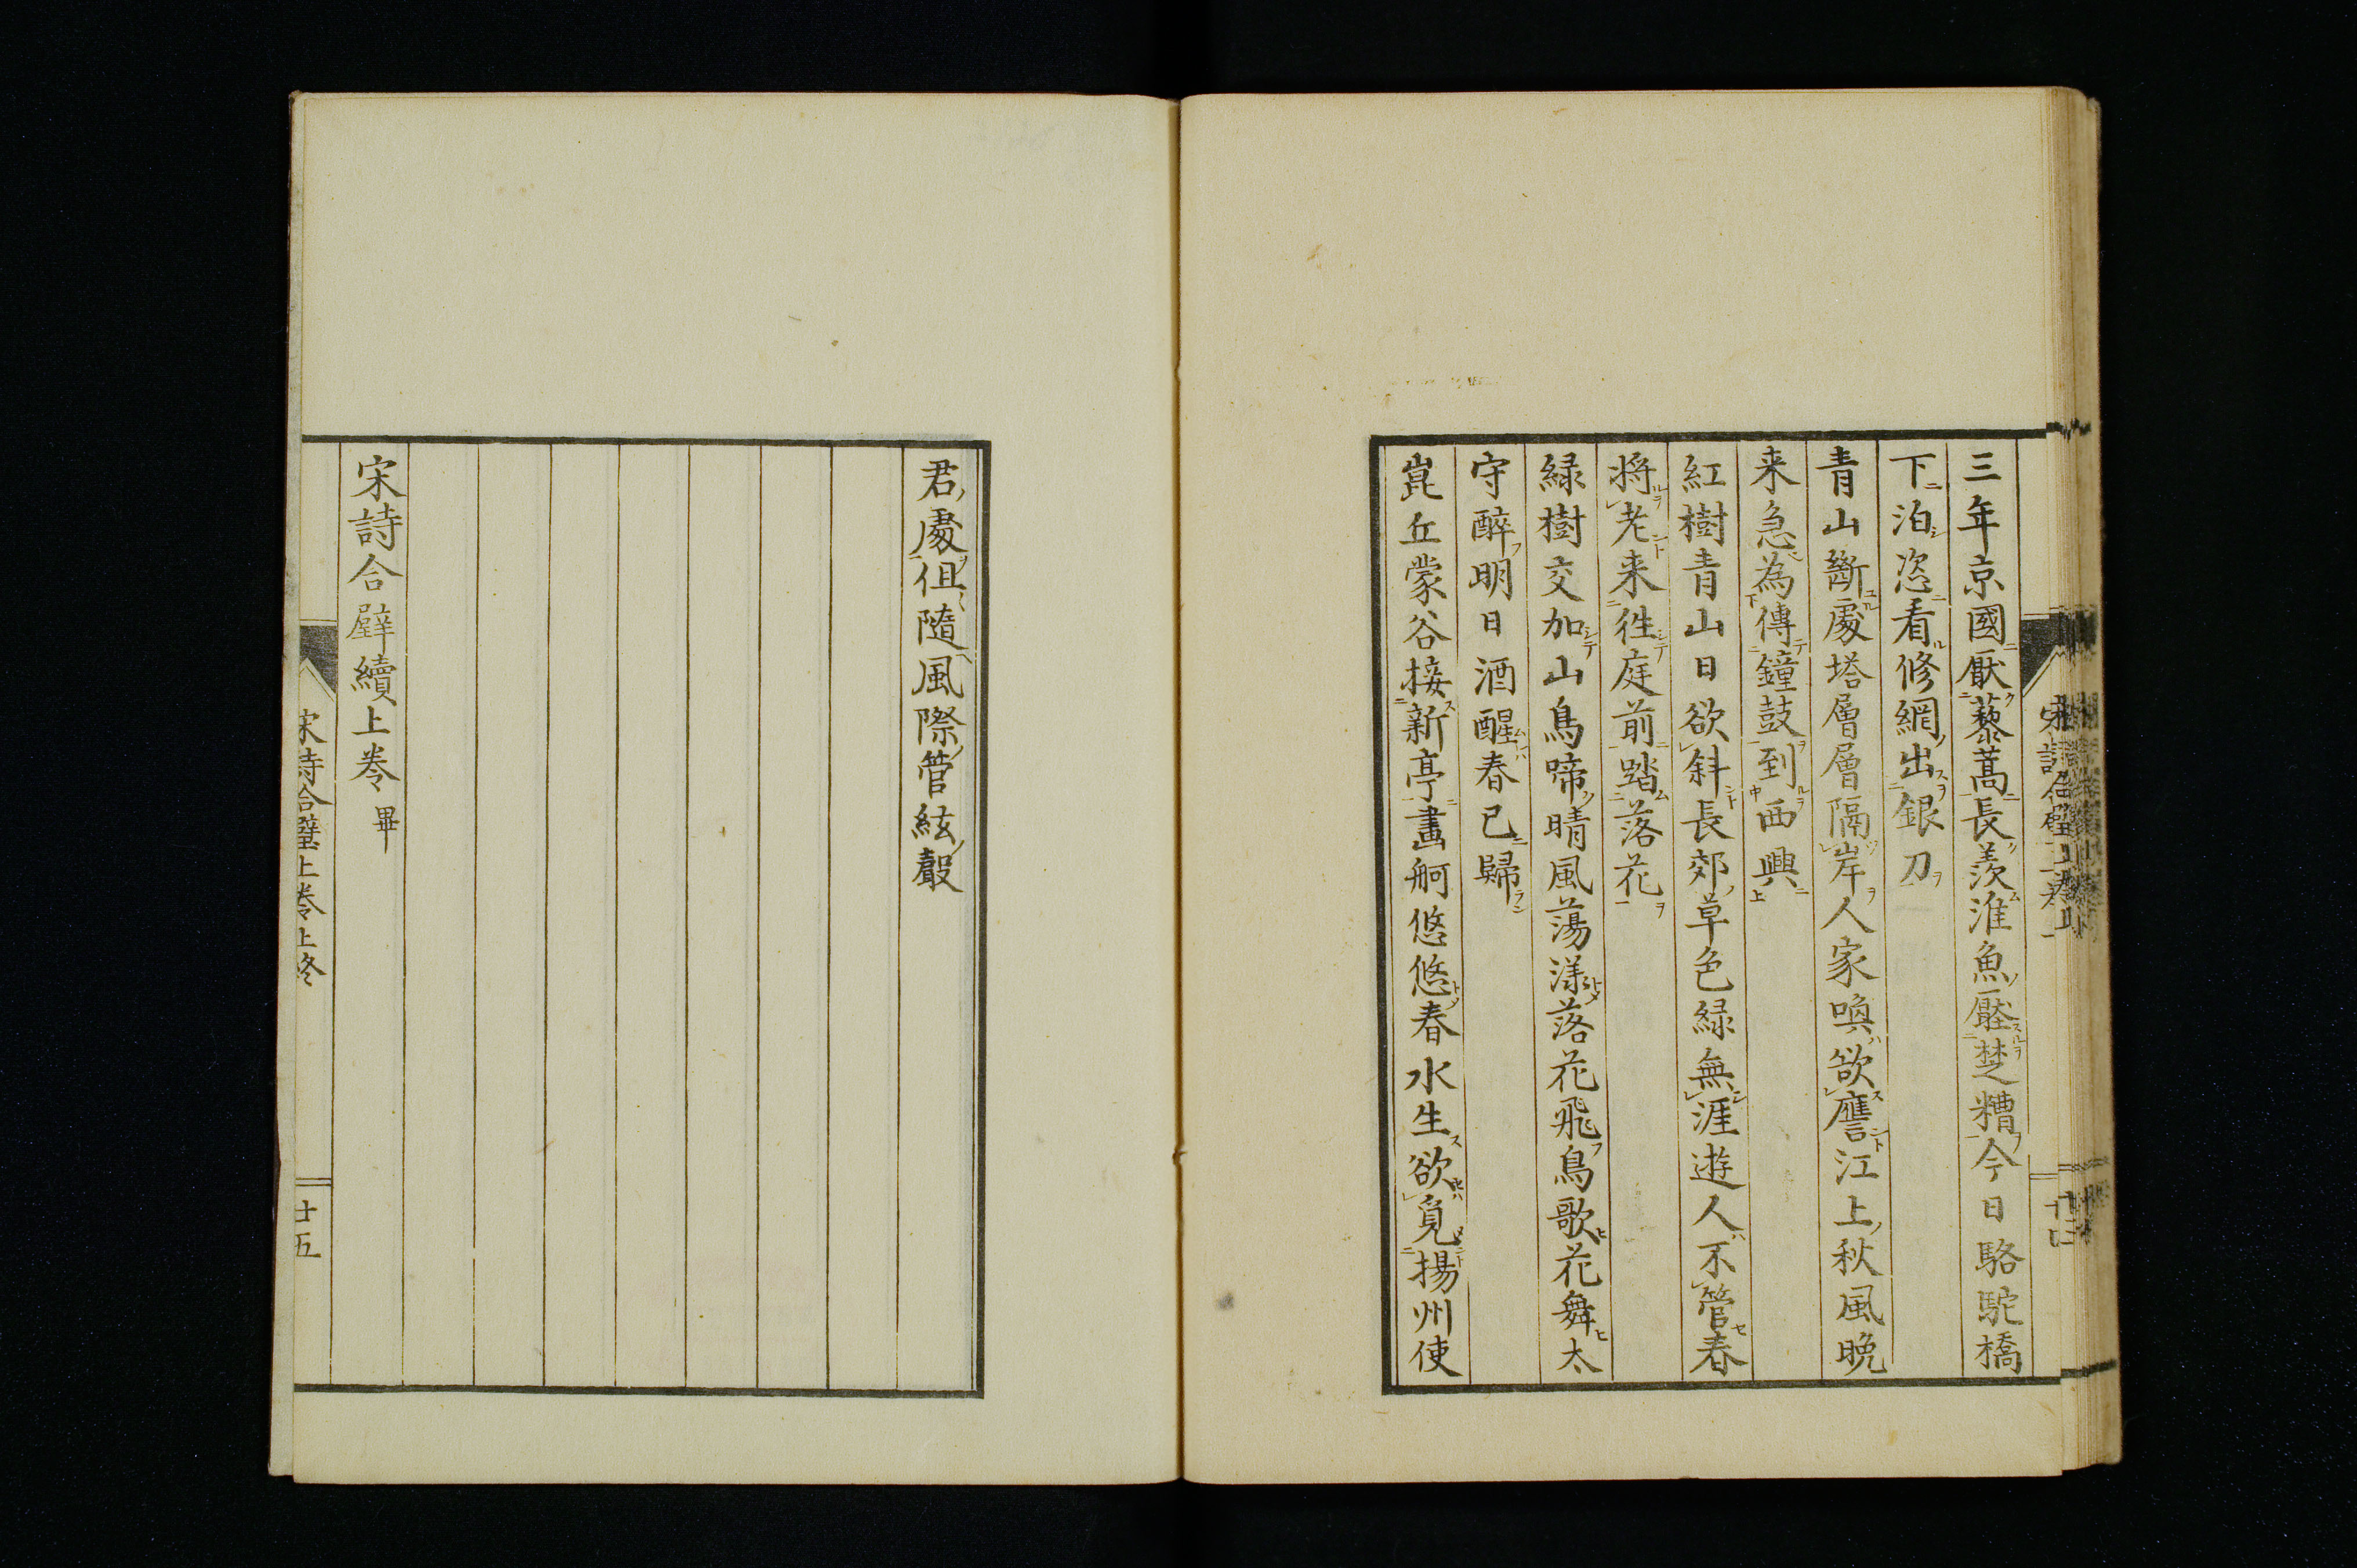 三年京國厭藜蒿長羨淮魚壓楚糟今日駱駝橋
下泊恣看修網出銀刀
青山斷處塔層層隔岸人家喚欲譍江上秋風晩
来急為傳鐘鼓到西興
紅樹青山日欲斜長郊草色緑無涯遊人不管春
将老来徃庭前踏落花
緑樹交加山鳥啼晴風蕩漾落花飛鳥歌花舞太
守醉明日酒醒春已歸
崑丘蒙谷接新亭畫舸悠悠春水生欲覓揚州使
君處但隨風際管絃聲
宋詩合璧續上巻 畢
宋詩合璧上巻上終
廿五